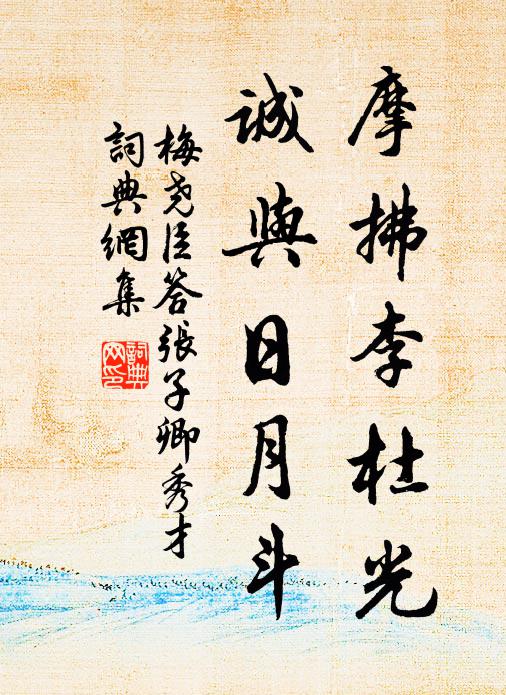 摩拂李杜光
誠與日月斗
梅尧臣答張子卿秀才
詞典網集
詞典
网印